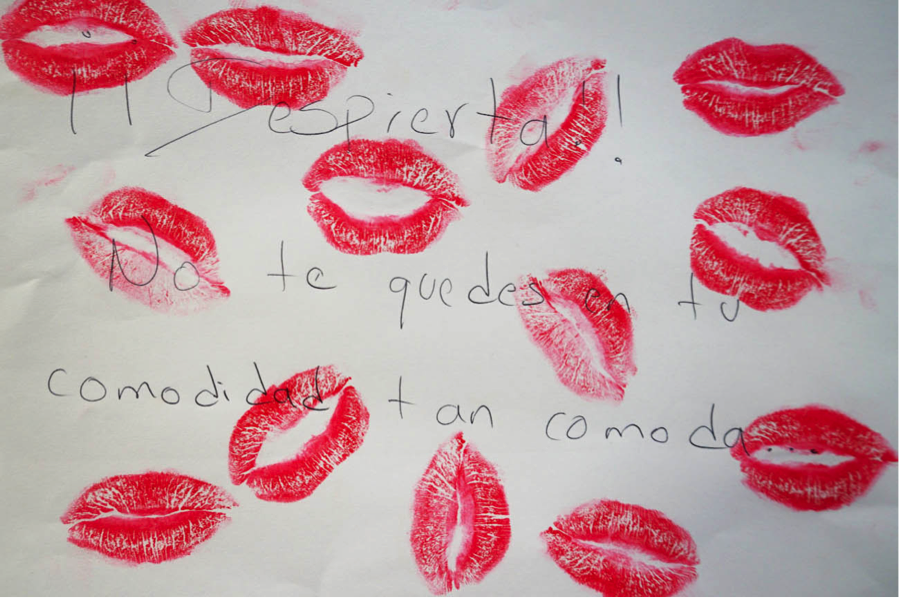 ¡¡Despierta!!
No te quedes en tu
comodidad tan comoda....